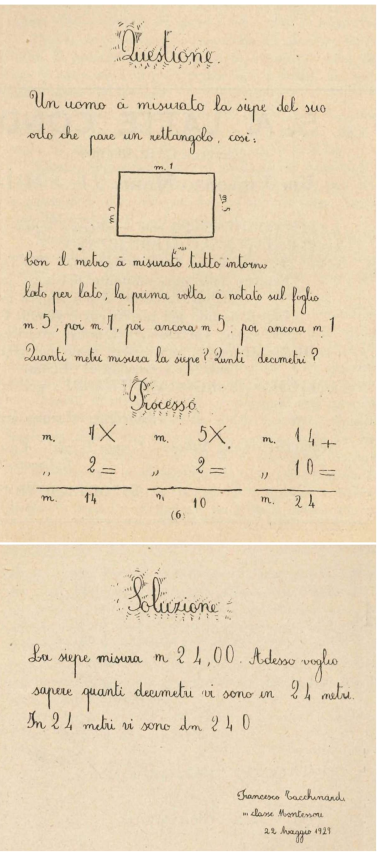 Questione.
Un uomo à misurato la siepe del suo
orto che pare un rettangolo, così:
m. 7
m. 5
m. 5
Con il metro à misurato tutto intorno
lato per lato, la prima volta à notato sul foglio
m. 5, poi m. 7, poi ancora m 5, poi ancora m 7
Quanti metri misura la siepe? Qunti decimetri?
Processo
m. 7 X m. 5 X. m. 14 +
„ 2 = „ 2 = „ 10 =
m. 14 m. 10 m. 24
(6)
Soluzione
La siepe misura m 24,00. Adesso voglio
sapere quanti decimetri vi sono in 24 metri.
In 24 metri vi sono dm 240
Francesco Tacchinardi
classe Montessori
22 Maggio 192